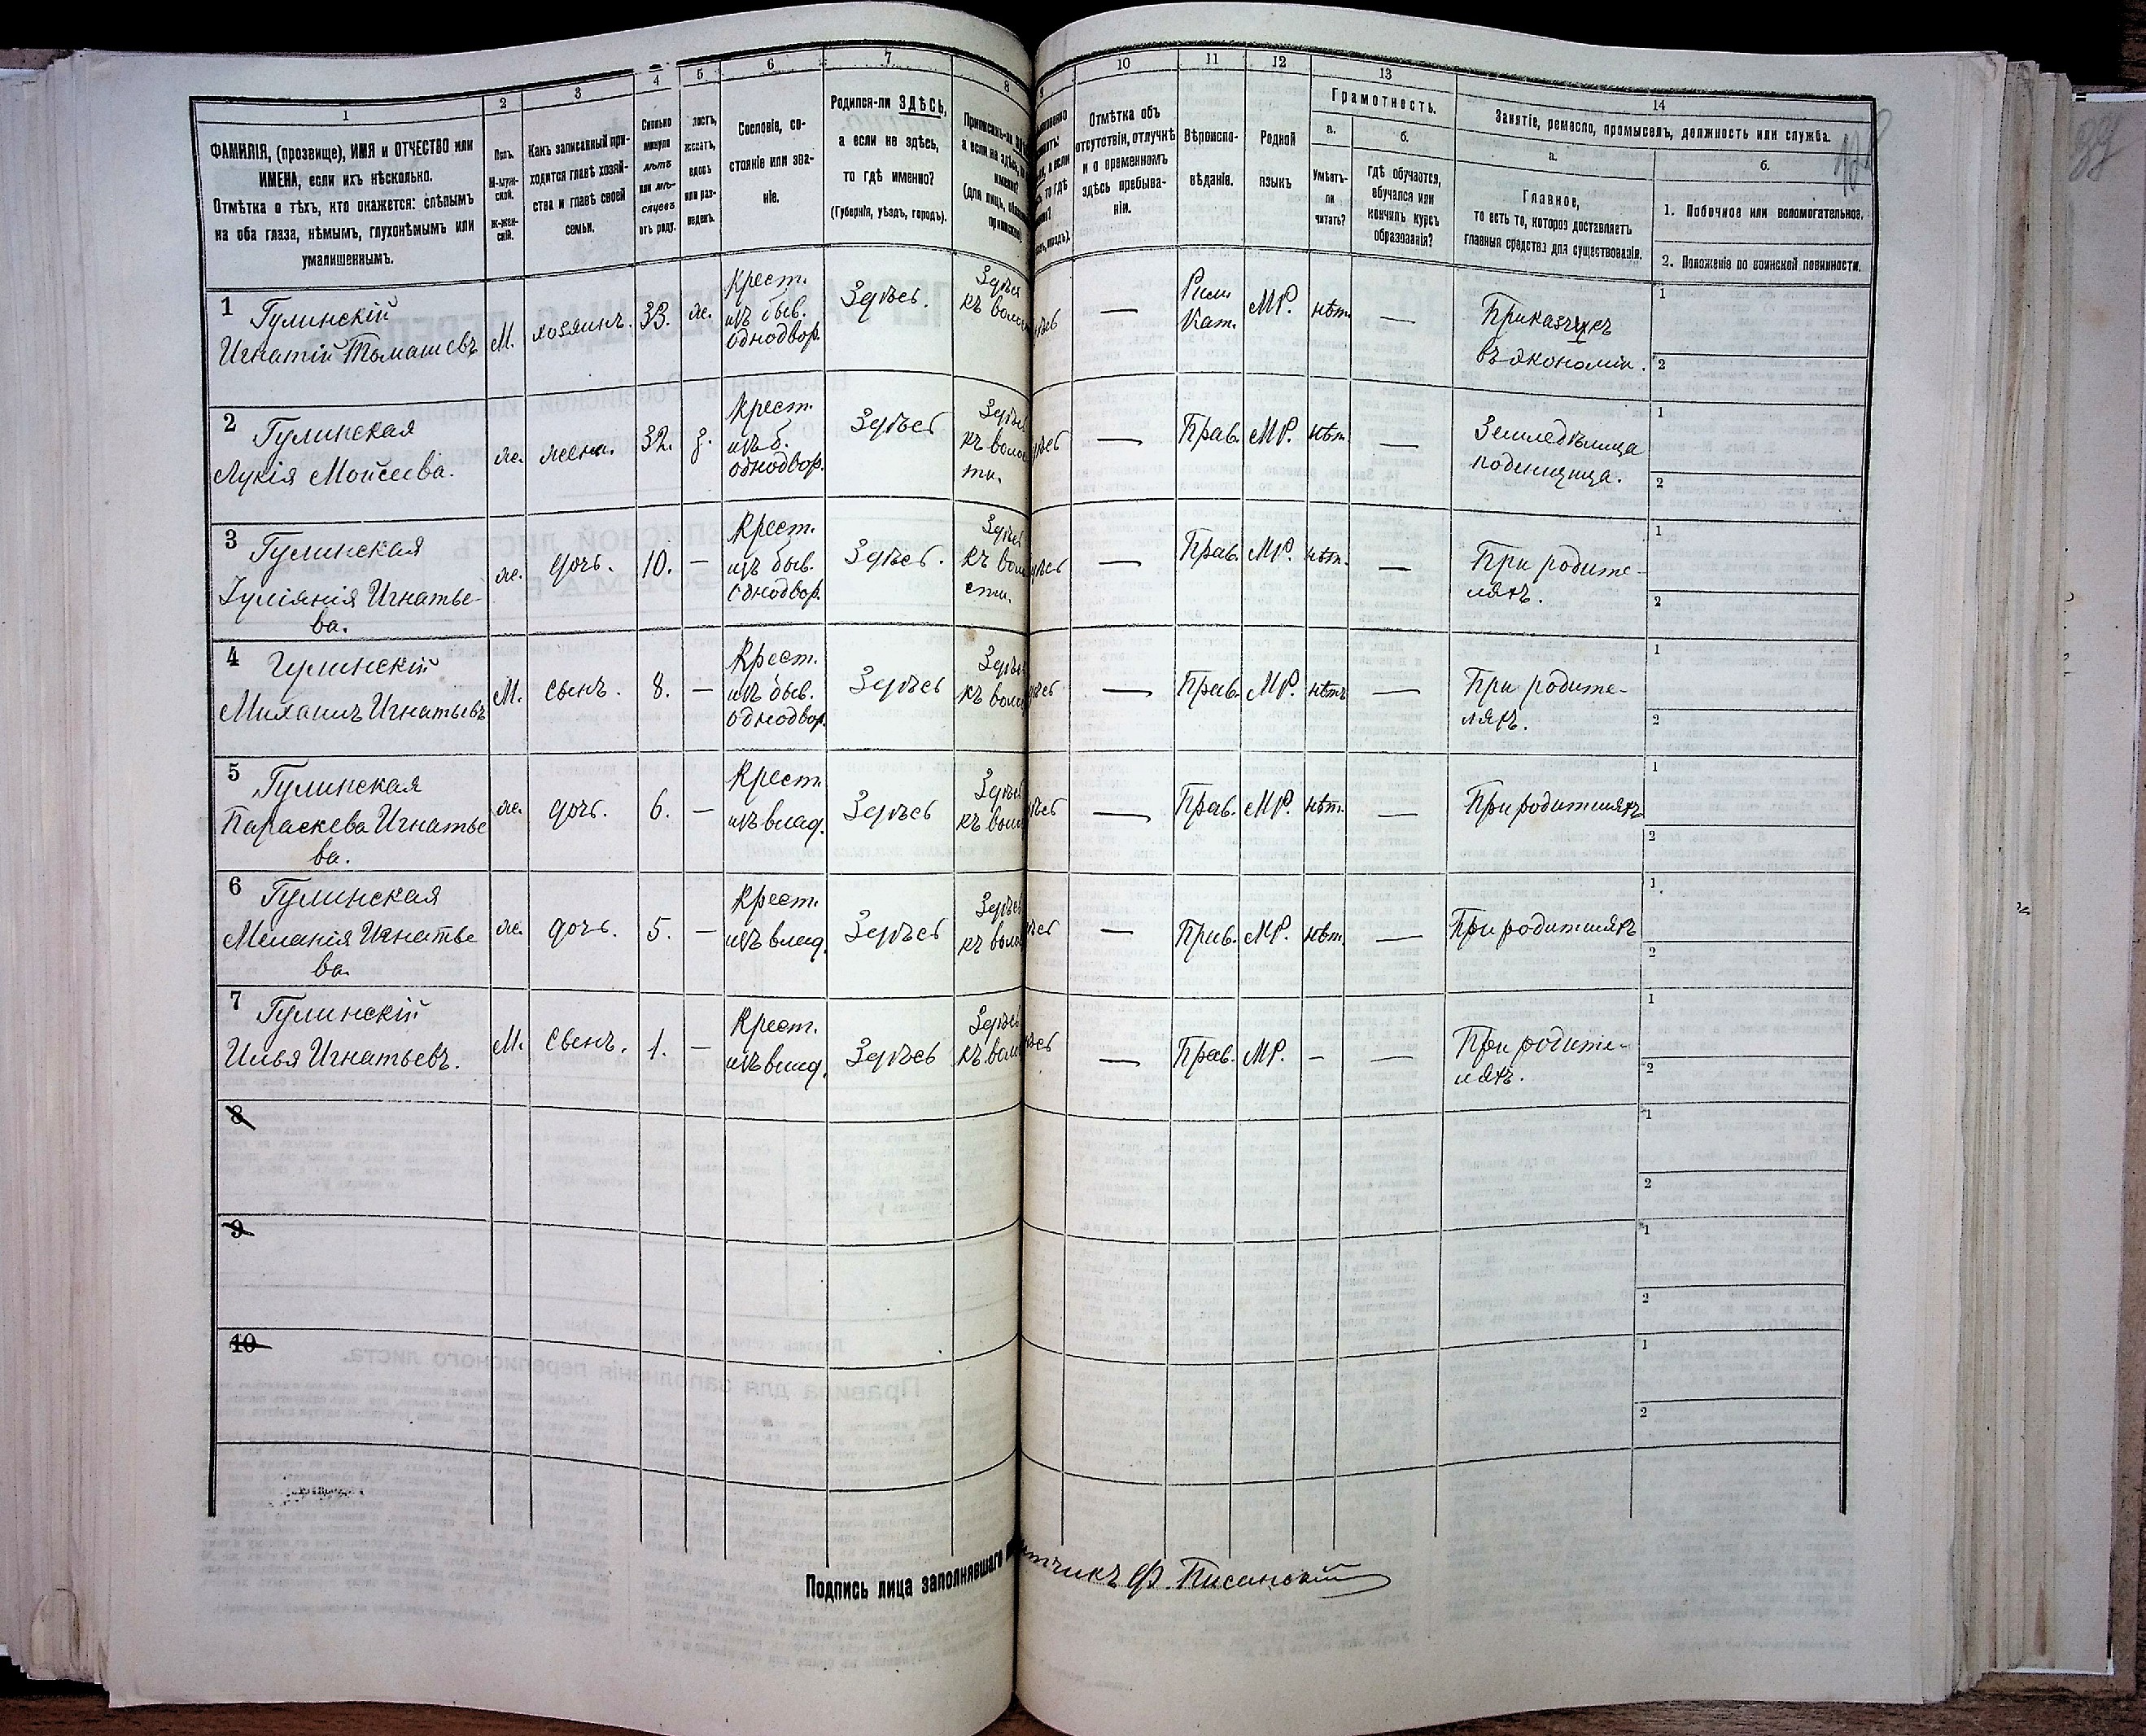 1
2
3
4
5
6
7
8
ФАМИЛІЯ, (прозвище), ИМЯ и ОТЧЕСТВО или
ИМЕНА, если ихъ нѣсколько.
Отмѣтка о тѣхъ, кто окажется: слѣпымъ
на оба глаза, нѣмымъ, глухонѣмымъ или
умалишеннымъ.
Полъ.
М-муж-
ской.
Ж-жен-
скій.
Какъ записанный при-
ходится главѣ хозяй-
ства и главѣ своей
семьи.
Сколько
минуло
лѣтъ
или мѣ-
сяцевъ
отъ роду.
Холостъ,
женатъ,
вдовъ
или раз-
веденъ.
Сословіе, со-
стояніе или зва-
ніе.
Родился-ли ЗДѢСЬ,
а если не здѣсь,
то гдѣ именно?
(Губернія, уѣздъ, городъ).
9
10
11
12
13
14
Отмѣтка объ
отсутствіи, отлучкѣ
и о временномъ
здѣсь пребыва-
ніи.
Вѣроиспо-
вѣданіе.
Родной
языкъ
Грамотность.
а.
Умѣетъ-
ли
читать?
б.
гдѣ обучается,
обучался или
кончилъ курсъ
образованія?
Занятіе, ремесло, промыселъ, должность или служба.
а.
Главное,
то есть то, которое доставляетъ
главныя средства для существованія.
б.
1. Побочное или вспомогательное.
2. Положеніе по воинской повинности.
1 Гулинскій
Игнатій Томашевъ
М. хозяинъ. 33. ж.
Крест.
изъ быв.
однодвор.
Здѣсь.
Здѣсь
къ волос
—
Рим.
Кат.
МР. нѣт. —
Приказчикъ
въ экономіи.
1
2
2 Гулинская
Лукія Мойсеева.
ж. жена. 32. з.
Крест.
изъ б.
однодвор.
Здѣсь
Здѣсь
къ волос
ти.
— Прав. МР. нѣт. —
Земледѣлица
поденщица.
1
2
3 Гулинская
Іуліянія Игнатье-
ва.
ж. дочь. 10. —
Крест.
изъ быв.
однодвор.
Здѣсь.
Здѣсь
къ воло
сти.
— Прав. МР. нѣт. —
При родите-
ляхъ.
1
2
4 Гулинскій
Михаилъ Игнатьевъ
М. сынъ. 8. —
Крест.
изъ быв.
однодвор.
Здѣсь
Здѣсь
къ воло
— Прав. МР. нѣтъ —
При родите-
ляхъ.
1
2
5 Гулинская
Параскева Игнатье
ва.
ж. дочь. 6. —
Крест.
изъ влад.
Здѣсь
Здѣсь
къ воло
— Прав. МР. нѣт. —
При родителяхъ
1
2
6 Гулинская
Меланія Игнатье
ва.
ж. дочь. 5. —
Крест.
изъ влад.
Здѣсь
Здѣсь
къ воло
— Прав. МР. нѣт. —
При родителяхъ
1
2
7 Гулинскій
Илья Игнатьевъ.
М. сынъ. 1. —
Крест.
изъ влад.
Здѣсь
Здѣсь
къ воло
— Прав. МР. - —
При родите-
ляхъ.
1
2
8
1
2
9
1
2
10
1
2
Подпись лица заполнявшаго
Ф. Писанскій